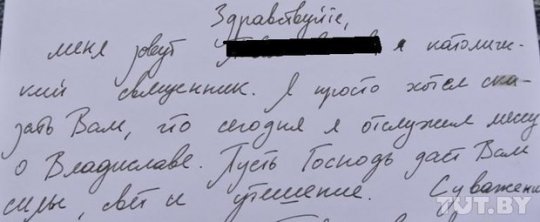 Здравствуйте,
меня зовут я католичес-
кий священник. Я просто хотел ска-
зать Вам, что сегодня я отслужил мессу
о Владиславе. Пусть Господь даст Вам
силы, свет и утешение. С уважени
TUT.BY